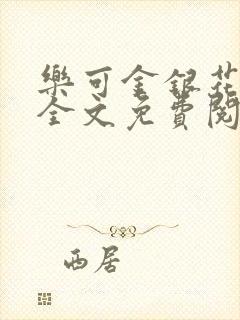 樂可金銀花
全文免費閱
西居